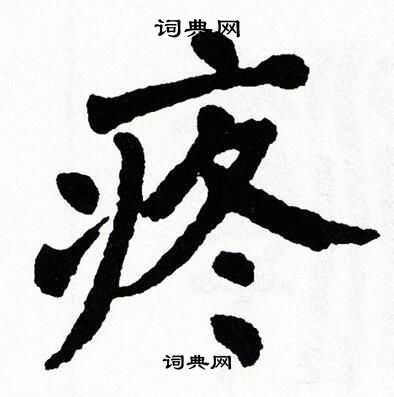 词典网
疼
词典网